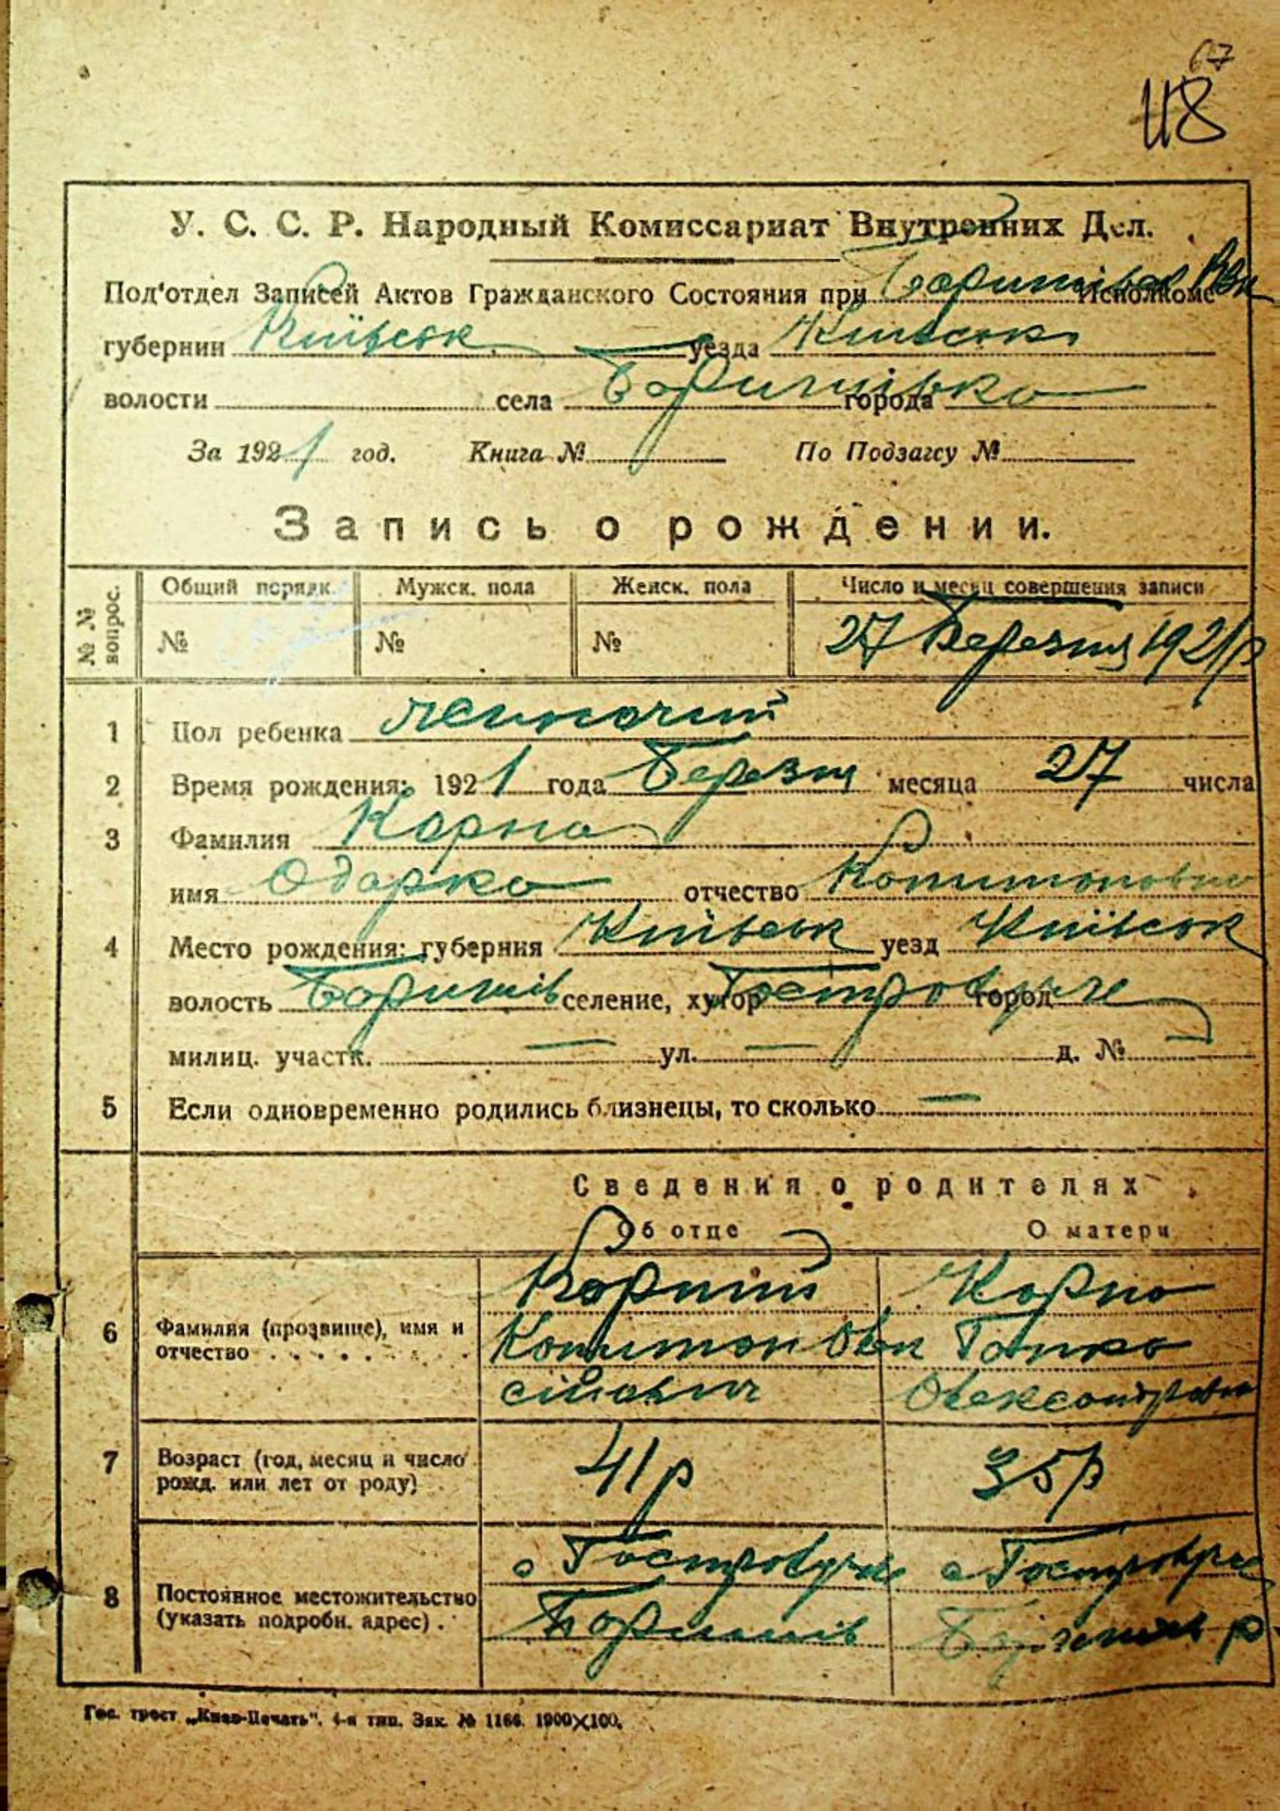 67
118
У. С. С. Р. Народный Комиссариат Внутренних Дел.
Под'отдел Записей Актов Гражданского Состояния при Исполкоме
губернии Київськ уезда Київськ
волости села Баришівка города
За 1921 год. Книга № По Подзагсу №
Запись о рождении.
№ № вопрос. Общий порядк. Мужск. пола Женск. пола Число и месяц совершения записи
№ № № 27 Березня 1921 р
1 Пол ребенка жиночий
2 Время рождения: 1921 года Березня месяца 27 числа
3 Фамилия Карпа
имя Одарка отчество Капитоновна
4 Место рождения: губерния Київськ уезд Київськ
волость Баришів селение, хутор Гостролуче город
милиц. участк. — ул. — д. № —
5 Если одновременно родились близнецы, то сколько —
Сведения о родителях
Об отце О матери
6 Фамилия (прозвище), имя и отчество
Капитон Овк Гапка
сійович Олександровна
7 Возраст (год, месяц и число рожд. или лет от роду) 41 р 35 р
8 Постоянное местожительство (указать подробн. адрес)
с Гостролуче с Гостролуче
Баришів Баришів р
Гос. трест „Киев-Печать". 4-я тип. Зак. № 1166. 1900×100.